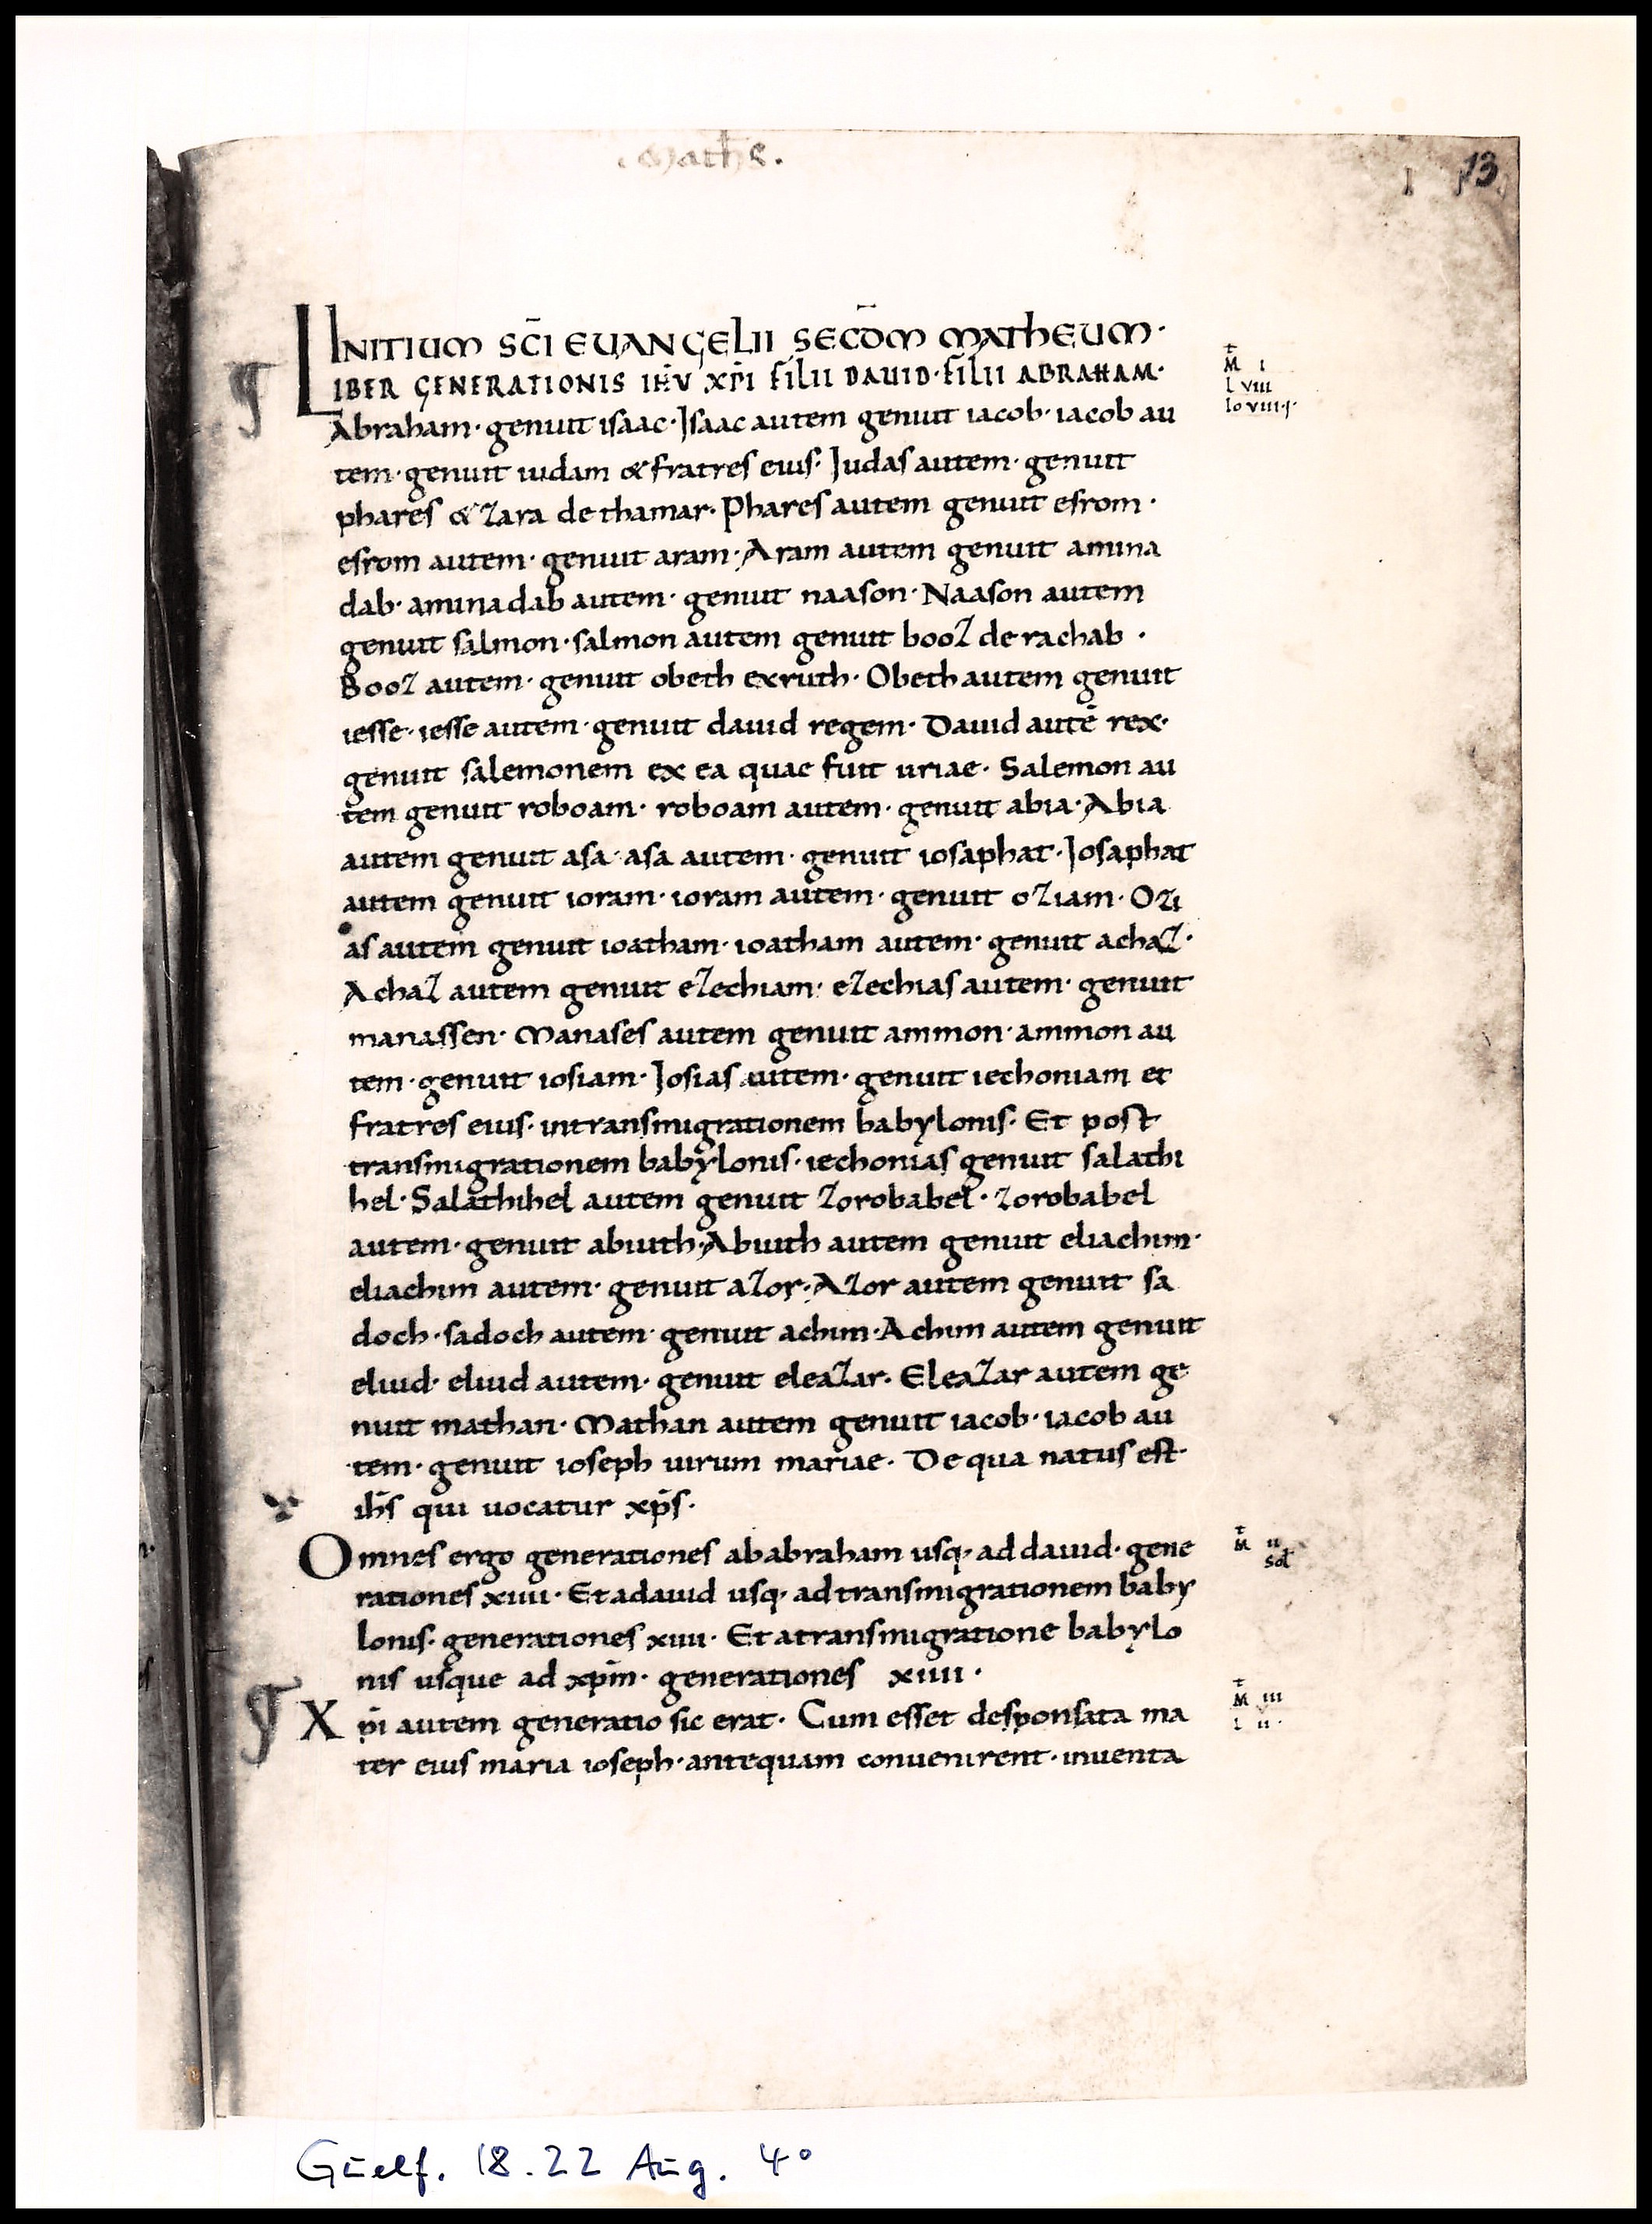 Mathꝰs.
I 13
INITIUM SC̄I EUANGELII SECD̄M MATHEUM·
LIBER GENERATIONIS IHV̄ XP̄I FILII DAUID· FILII ABRAHAM·
Abraham· genuit isaac· Isaac autem genuit iacob· iacob au
tem· genuit iudam & fratres eius· Judas autem· genuit
phares & zara de thamar· Phares autem genuit esrom·
esrom autem· genuit aram· Aram autem genuit amina
dab· aminadab autem· genuit naason· Naason autem
genuit salmon· salmon autem genuit booz de rachab·
Booz autem· genuit obeth ex ruth· Obeth autem genuit
iesse· iesse autem· genuit dauid regem· Dauid autē rex·
genuit salemonem ex ea quae fuit uriae· Salemon au
tem genuit roboam· roboam autem· genuit abia· Abia
autem genuit asa· asa autem· genuit iosaphat· Josaphat
autem genuit ioram· ioram autem· genuit oziam· Ozi
as autem genuit ioatham· ioatham autem· genuit achaz·
Achaz autem genuit ezechiam· ezechias autem· genuit
manassen· Manases autem genuit ammon· ammon au
tem· genuit iosiam· Josias autem· genuit iechoniam et
fratres eius· in transmigrationem babylonis· Et post
transmigrationem babylonis· iechonias genuit salathi
hel· Salathihel autem genuit zorobabel· zorobabel
autem· genuit abiuth· Abiuth autem genuit eliachim·
eliachim autem· genuit azor· Azor autem genuit sa
doch· sadoch autem· genuit achim· Achim autem genuit
eliud· eliud autem· genuit eleazar· Eleazar autem ge
nuit mathan· Mathan autem genuit iacob· iacob au
tem· genuit ioseph uirum mariae· De qua natus est·
ih̄s qui uocatur xp̄s·
Omnes ergo generationes ab abraham usq· ad dauid· gene
rationes xiiii· Et a dauid usq· ad transmigrationem baby
lonis· generationes xiiii· Et a transmigratione babylo
nis usque ad xp̄m· generationes xiiii·
Xp̄i autem generatio sic erat· Cum esset desponsata ma
ter eius maria ioseph· antequam conuenirent· inuenta
M i
L viii
Io viiii·
M ii
sol
M iii
L ii·
Guelf. 18.22 Aug. 4°